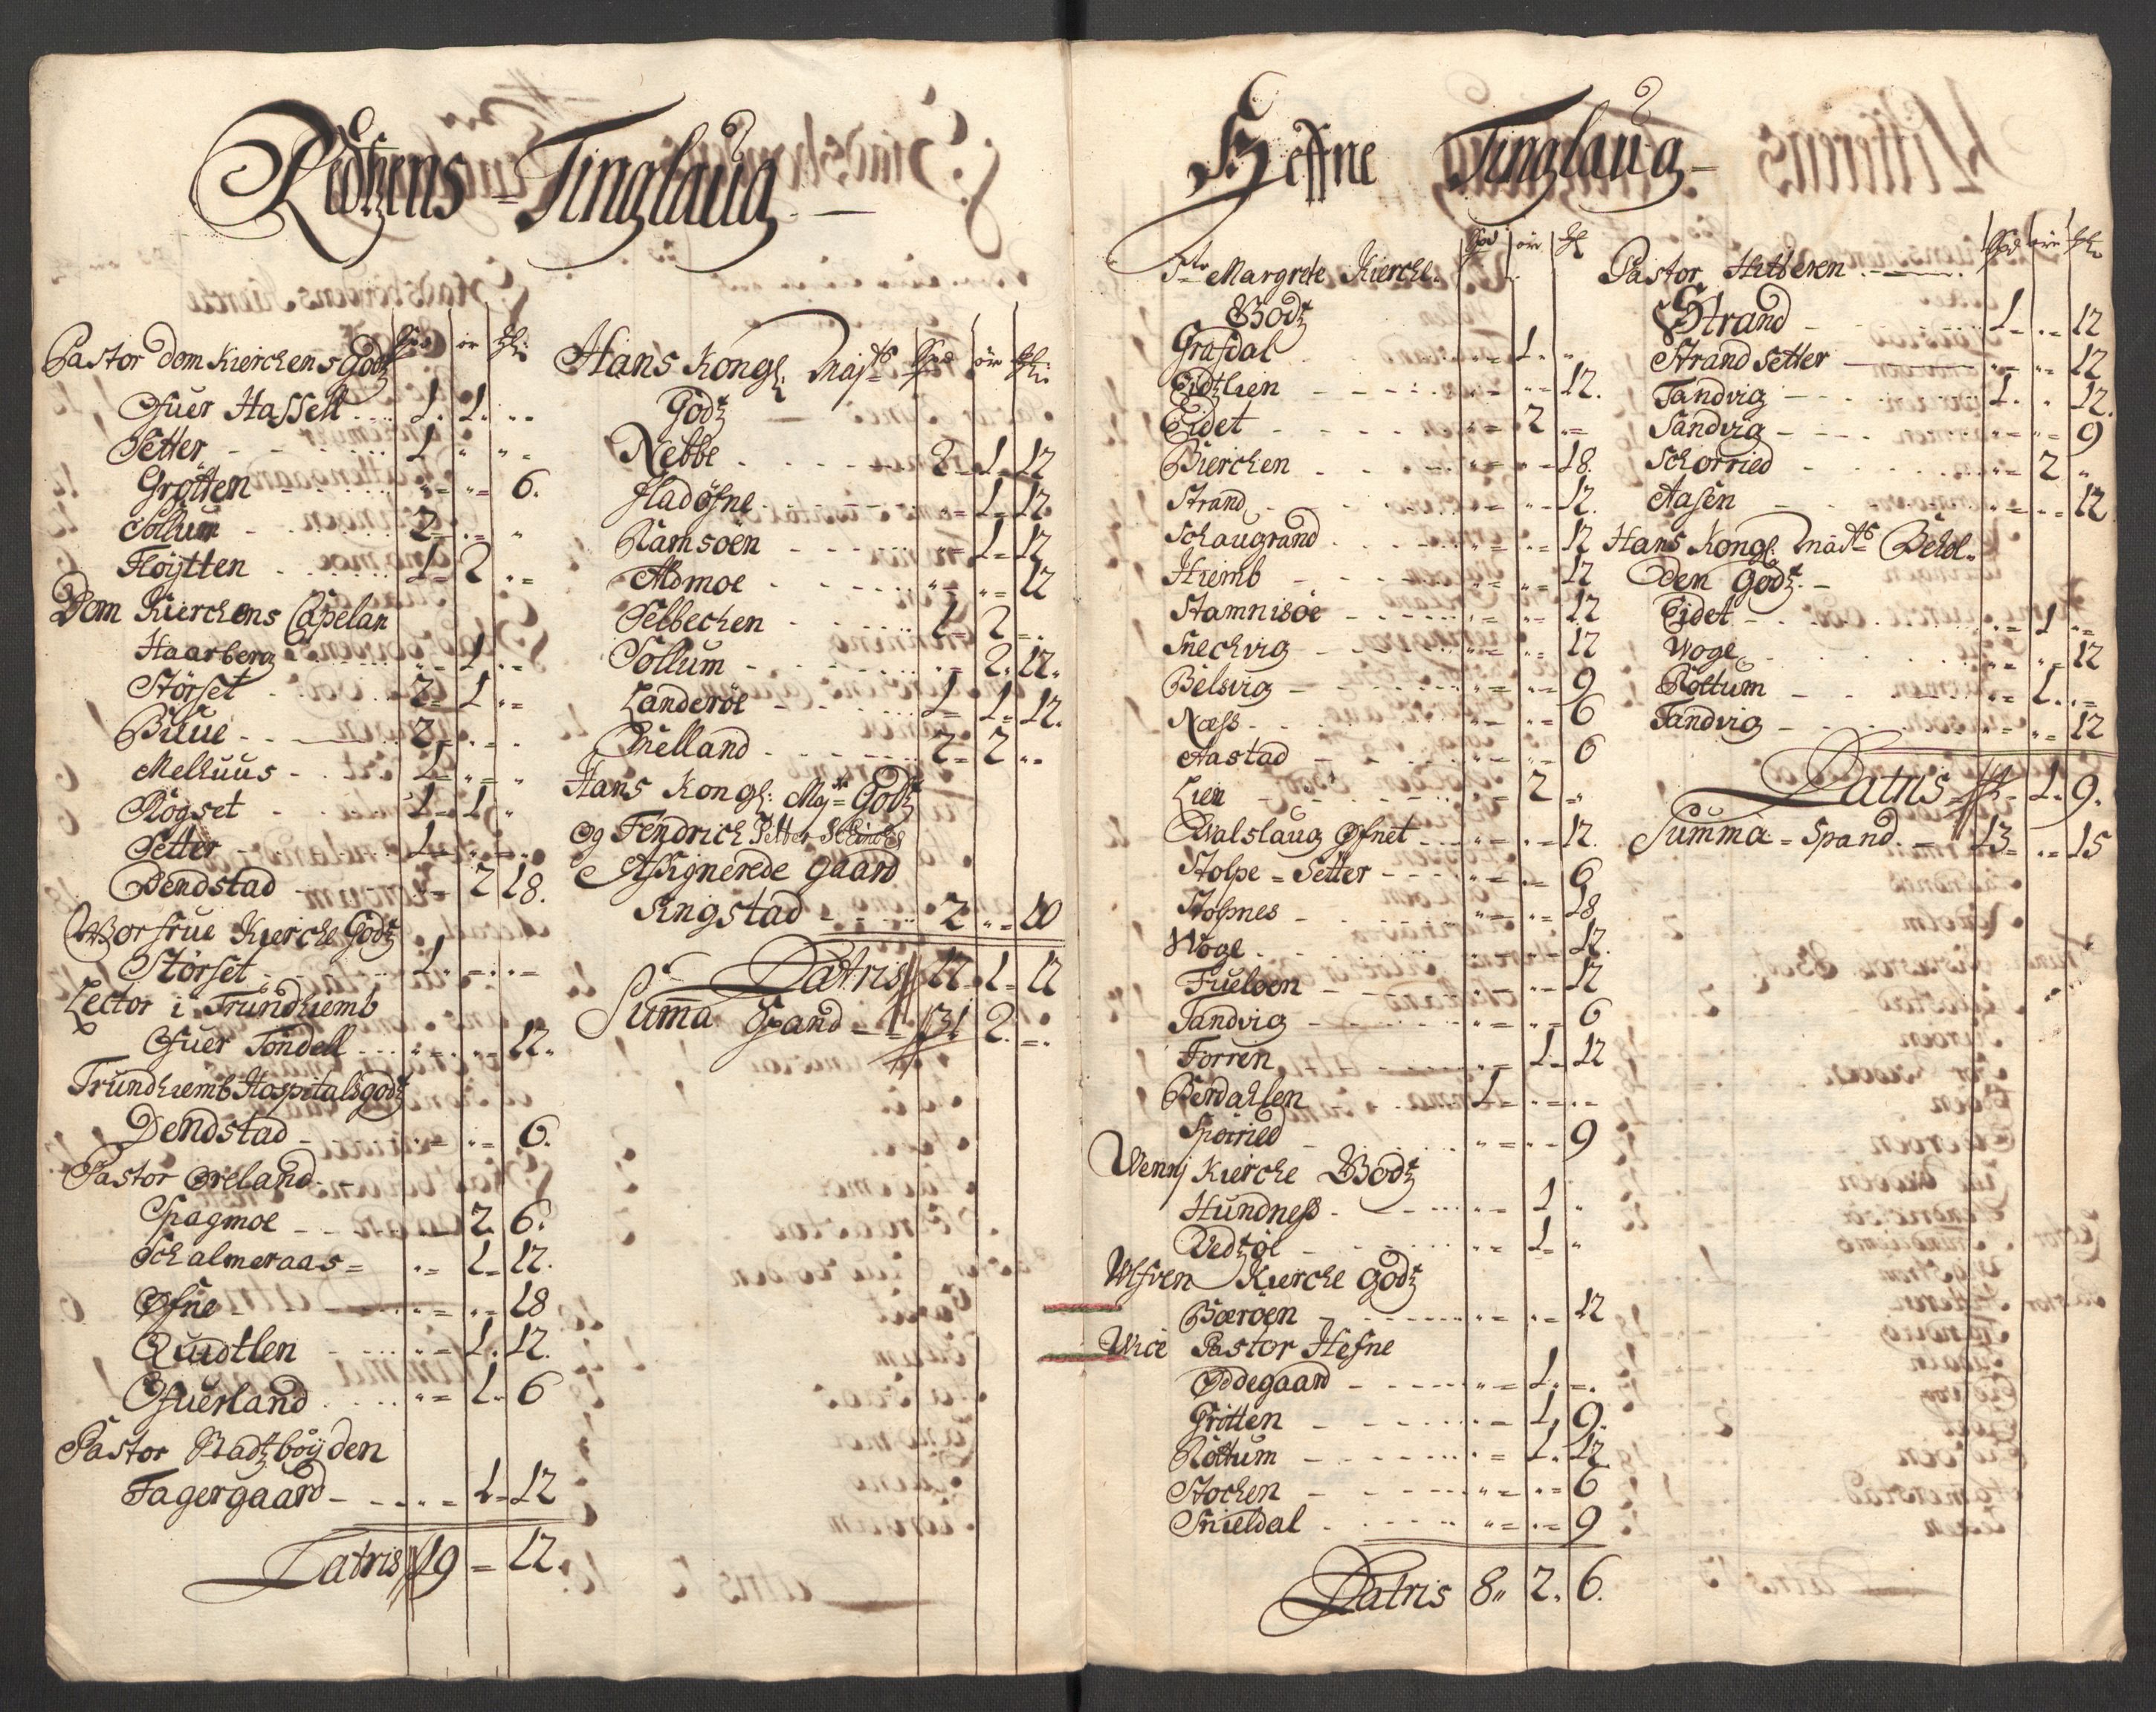 Rißens = Tinglaug
Pastor Dom Kierchens Godtz Spd ör Mkl
Ofuer Hassell 1. 1. „
Setter 1 „ „
Grötten „ „ 6.
Sollum 2 „ „
Höijtten 1 2 „
Dom Kierchens Capelan
Haarberg „ 1 „
Störset 2 1 „
Buue 2 „ „
Melhuus 1 „ „
Rögset 1 1 „
Setter 1 „ „
Dendstad „ 2 18.
Worfrue Kierche Godtz
Störset 1 „ „
Lector i Trundhiemb
Ofuer Tondell „ „ 12.
Trundhiemb Hospitalsgodtz
Dendstad „ „ 6.
Pastor Øreland
Spagmoe „ 2 6.
Schalmeraas „ 1 12.
Øfne „ „ 18
Quidtlen „ 1. 12.
Ofuerland „ 1. 6
Pastor Stadtzböijden
Fagergaard „ 1 12
Latris 19 = 12.
Hans Kongl: Maijts Spd ör Mkl
Godtz
Nebbe 2 1 12
Hadøfne „ 1 12
Ramsöen „ 1 12
Aldmoe „ „ 12
Selbechen 1 2 „
Sollum „ 2. 12.
Landeröe 1 1 12.
Quelland 2 2 „
Hans Kongl: Mayts Godtz
og Fendrich Petter
Assignerede gaard
Ringstad 2 „ 20
Latris 12 1 12
Summa Spand = 31 2. „
Heffne Tinglaug
St. Margrete Kierche Spd ör Mkl
Bodtz
Grafdal „ 1. „
Eidtzlien „ „ 12.
Eidet „ 2 „
Bierchen „ „ 18.
Strand „ „ 12.
Schaugrand „ „ 12
Hiemb „ „ 12
Stamnisöe „ „ 12
Snechvig „ „ 12
Belsvig „ „ 9
Næss „ „ 6
Aastad „ „ 6
Lien „ 2 „
Walslaug Øfnet „ „ 12.
Stolpe = Setter „ „ 6
Stolpnes „ „ 18
Woge „ „ 12.
Fueloen „ „ 12
Tandvig „ „ 6
Forren „ 1. 12
Berdahlen 1 „ „
Sporried „ „ 9
Wennj Kierche Bodtz
Hundness „ 1 „
Vedtzöe „ 1 „
Ulfven Kierche godtz
Bæröen „ „ 12
Wice Pastor Hefne
Oddegaard „ 1. „
Grötten „ 1, 9.
Rottum „ 1. 12.
Stochen „ „ 6
Snieldal „ „ 9
Latris 8„ 2. 6.
Pastor Hitteren Spd ör Mkl
Strand 1 „ 12
Strand Setter „ „ 12
Tandvig 1. „ 12.
Sandvig „ „ 9
Schorried „ 2 „
Aasen „ „ 12
Hans Kongl: Maijts Behol=
den Godtz
Eidet „ 1 „
Woge „ „ 12
Rottum „ 1. „
Tandvig „ „ 12
Latris 4 1. 9.
Summa = Spand. = 13 „ 15